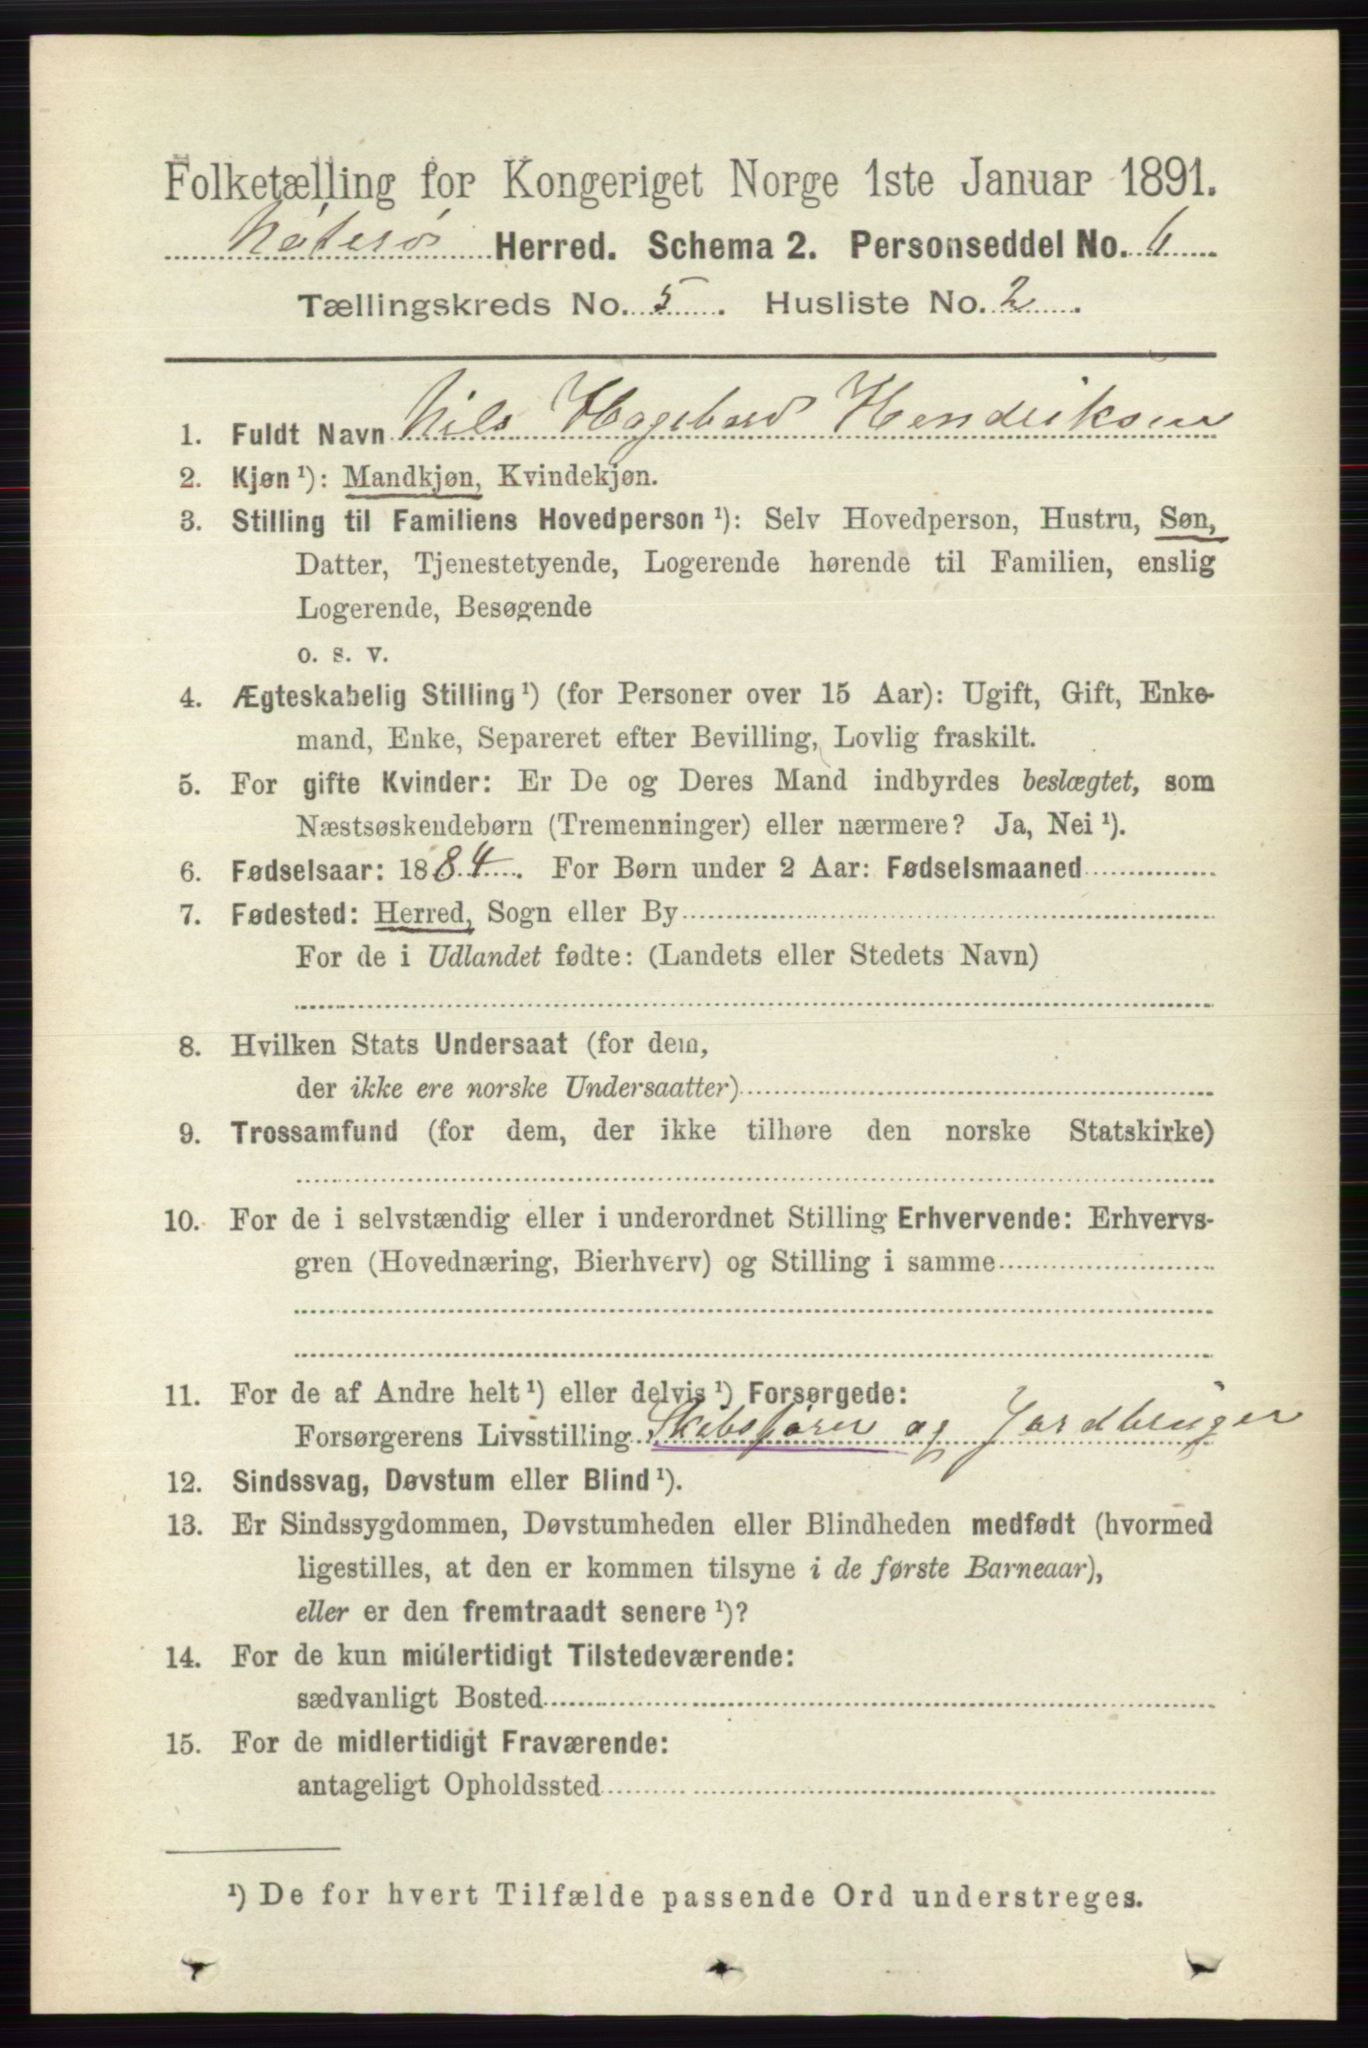 Folketælling for Kongeriget Norge 1ste Januar 1891.
Nøterø Herred. Schema 2. Personseddel No. 6
Tællingskreds No. 5. Husliste No. 2.
1. Fuldt Navn Nils Hagbard Hendriksen
2. Kjøn ¹): Mandkjøn, Kvindekjøn.
3. Stilling til Familiens Hovedperson ¹): Selv Hovedperson, Hustru, Søn,
Datter, Tjenestetyende, Logerende hørende til Familien, enslig
Logerende, Besøgende
o. s. v.
4. Ægteskabelig Stilling ¹) (for Personer over 15 Aar): Ugift, Gift, Enke-
mand, Enke, Separeret efter Bevilling, Lovlig fraskilt.
5. For gifte Kvinder: Er De og Deres Mand indbyrdes beslægtet, som
Næstsøskendebørn (Tremenninger) eller nærmere? Ja, Nei ¹).
6. Fødselsaar: 1884. For Børn under 2 Aar: Fødselsmaaned
7. Fødested: Herred, Sogn eller By
For de i Udlandet fødte: (Landets eller Stedets Navn)
8. Hvilken Stats Undersaat (for dem,
der ikke ere norske Undersaatter)
9. Trossamfund (for dem, der ikke tilhøre den norske Statskirke)
10. For de i selvstændig eller i underordnet Stilling Erhvervende: Erhvervs-
gren (Hovednæring, Bierhverv) og Stilling i samme
11. For de af Andre helt ¹) eller delvis ¹) Forsørgede:
Forsørgerens Livsstilling Skibsfører og Jordbruger
12. Sindssvag, Døvstum eller Blind ¹).
13. Er Sindssygdommen, Døvstumheden eller Blindheden medfødt (hvormed
ligestilles, at den er kommen tilsyne i de første Barneaar),
eller er den fremtraadt senere ¹)?
14. For de kun midlertidigt Tilstedeværende:
sædvanligt Bosted
15. For de midlertidigt Fraværende:
antageligt Opholdssted
¹) De for hvert Tilfælde passende Ord understreges.